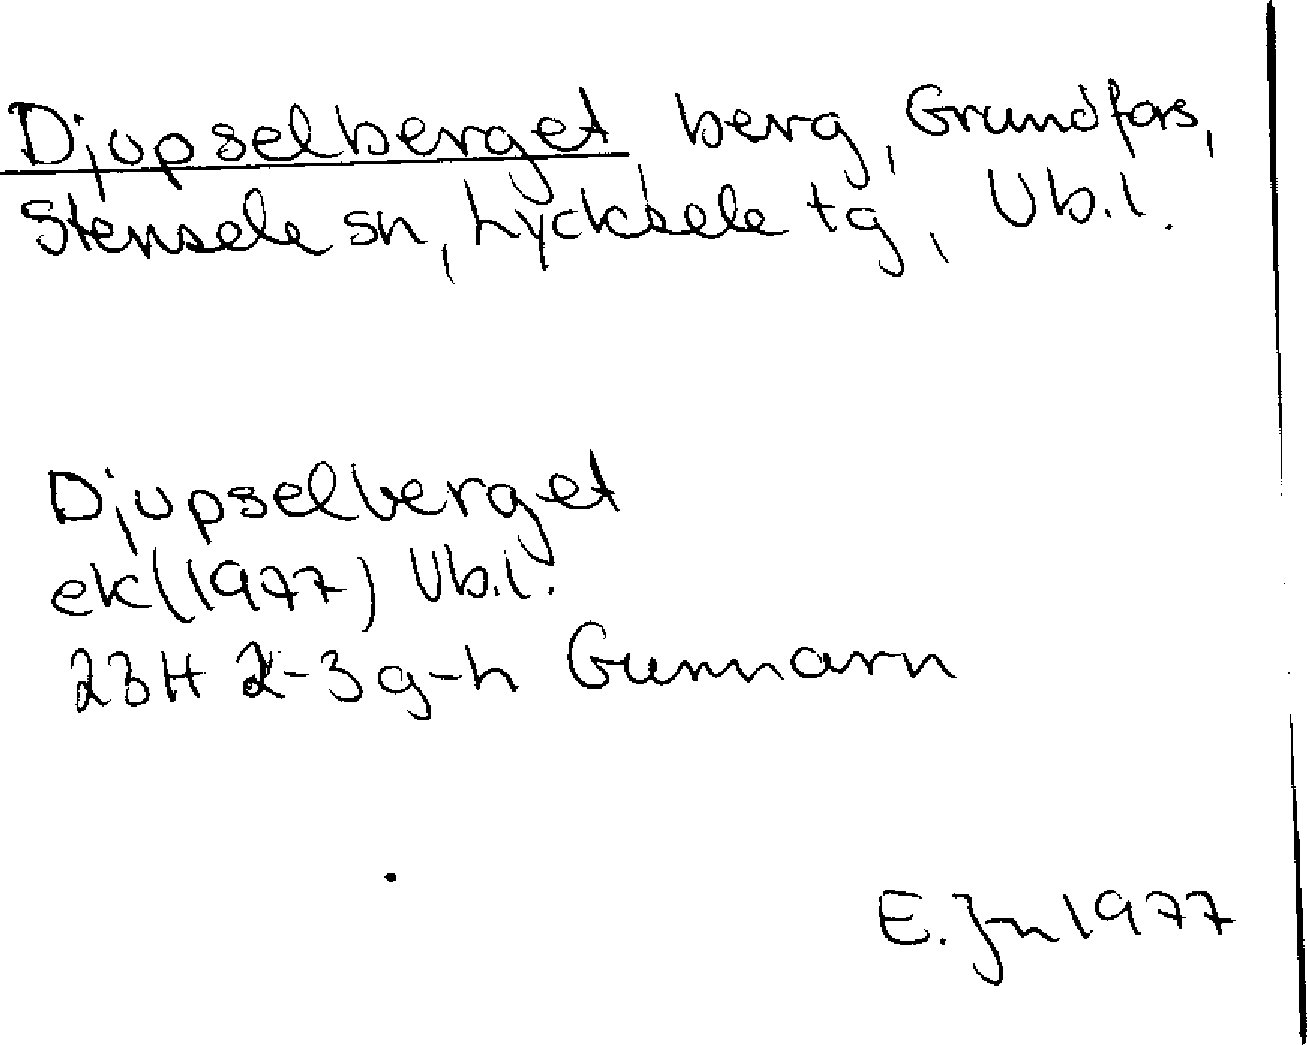 Djupselberget berg, Grundfors,
Stensele sn, Lycksele tg, Vb.l.
Djupselberget
ek (1977) Vb.l.
23H 2-3 g-h Gunnarn
E. Jn 1977